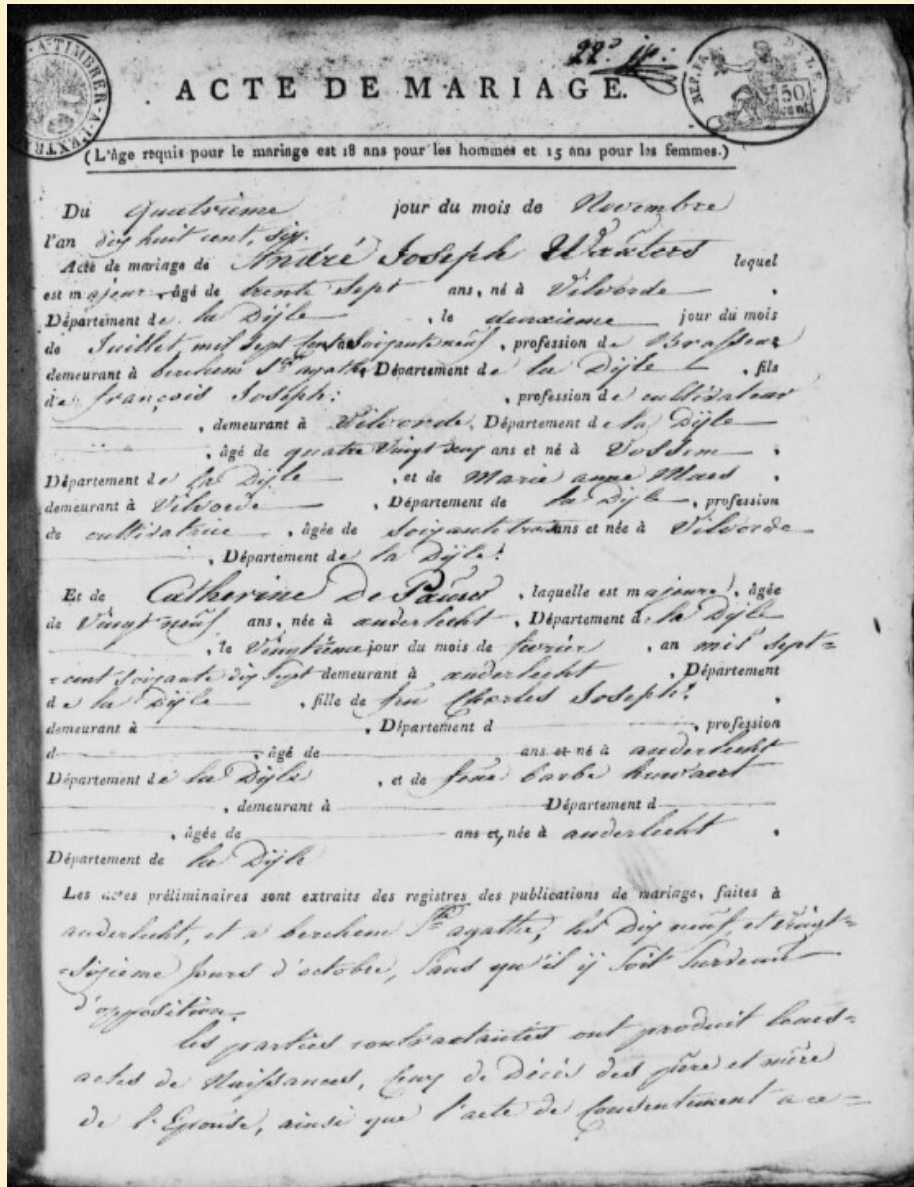 22e
A-TIMBRER-A-L'EXTR
REP. FRA
50
cent
ACTE DE MARIAGE.
(L'âge requis pour le mariage est 18 ans pour les hommes et 15 ans pour les femmes.)
Du quatrieme jour du mois de Novembre
l'an dix huit cent, six.
Acte de mariage de André Joseph Wauters lequel
est majeur âgé de trente sept ans, né à Vilvorde ,
Département de la Dÿle , le deuxieme jour du mois
de Juillet mil sept cent Soixante neuf , profession de Brasseur
demeurant à berchem Ste agathe Département de la Dÿle , fils
de françois Joseph : , profession de cultivateur
, demeurant à Vilvorde, Département de la Dÿle
, âgé de quatre Vingt deux ans et né à Vossem ,
Département de la Dÿle , et de Marie anne Maes
demeurant à Vilvorde , Département de la Dÿle , profession
de cultivatrice , âgée de Soixante trois ans et née à Vilvorde
, Département de la Dÿle :
Et de Catherine De Pauw , laquelle est majeure, âgée
de Vingt neuf ans, née à anderlecht , Département de la Dÿle
, le Vingtieme jour du mois de fevrier , an mil sept=
=cent Soixante dix Sept demeurant à anderlecht , Département
de la Dÿle , fille de feu Charles Joseph : ,
demeurant à , Département d , profession
d , âgé de ans et né à anderlecht
Département de la Dÿle , et de feue barbe
, demeurant à Département d
, âgée de ans et, née à anderlecht ,
Département de la Dÿle
Les actes préliminaires sont extraits des registres des publications de mariage, faites à
anderlecht, et a berchem Ste agathe, les Dix neuf, et Vingt=
=Sixieme Jours d'octobre, Sans qu'il ÿ Soit Survenu
d'opposition.
les parties contractantes ont produit leurs=
actes de Naissances, Ceux de Décès des pere et mere
de l'Epouse, ainsi que l'acte de Consentement a ce=